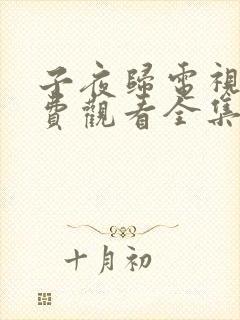 子夜歸電視
費觀看全集
十月初